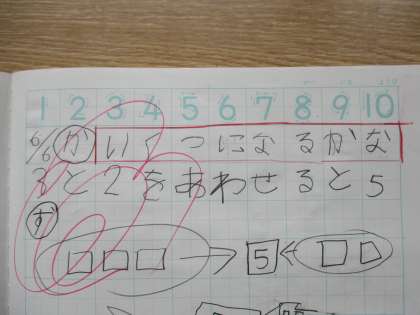 1 2 3 4 5 6 7 8 9 10
6/6 か いくつになるかな
3と2をあわせると5
ず
5